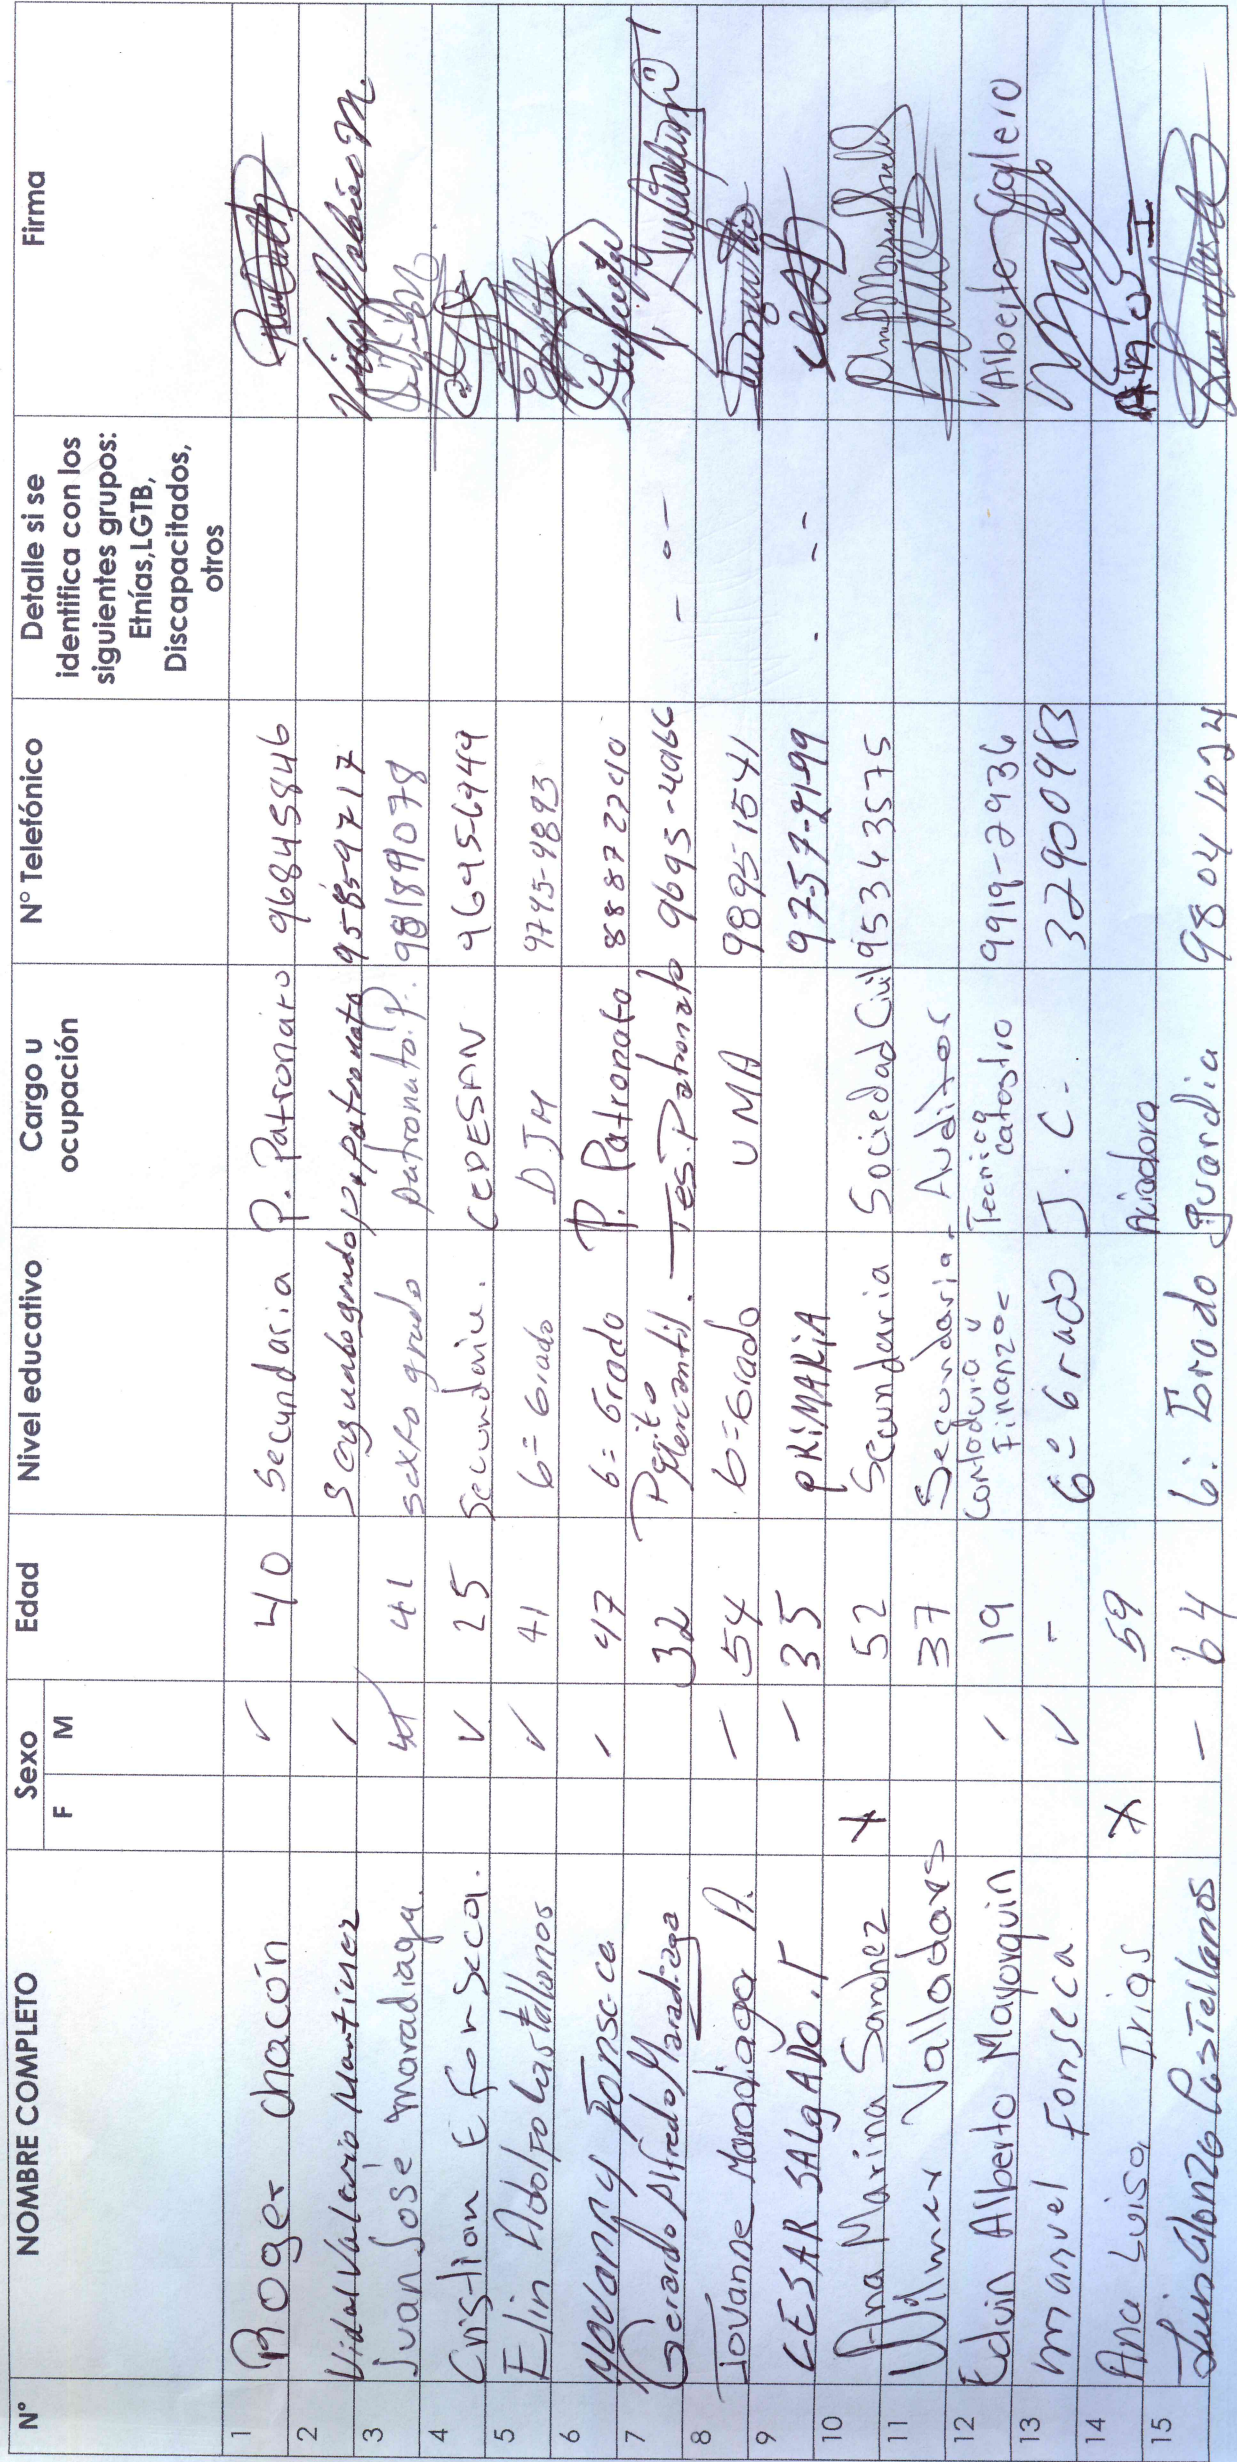 N° NOMBRE COMPLETO Sexo Edad Nivel educativo Cargo u ocupación N° Telefónico Detalle si se identifica con los siguientes grupos: Etnías,LGTB, Discapacitados, otros Firma
F M
1 Roger chacón ✓ 40 Secundaria P. Patronato 96845846
2 Vidal Valerio Martinez / Segundo grado p. patronato 9585-9717
3 Juan José maradiaga. 41 sexto grado patronato p. 98189078
4 Cristian E fonseca. ✓ 25 Secundaria. CEDESAN 9695-6949
5 Elin Adolfo Castellanos ✓ 41 6= Grado DJM 9745-9893
6 YOVANNY FONSECA / 47 6= Grado P. Patronato 88872240
7 Gerardo Alfredo Maradiaga 32 Perito Mercantil. Tes. Patronato 9695-4966 - o -
8 Jovanne Maradiaga A. - 54 6=Grado UMA 98951541
9 CESAR SALGADO. T - 35 PRIMARIA 9757-2199 . - -
10 Ana Marina Sanchez X 52 Secundaria Sociedad Civil 95343575
11 Wilmer Valladares 37 Secundaria. Auditor
12 Edwin Alberto Mayorquin / 19 Contaduria y Finanzas Tecnico catastro 9919-2936 Alberto Galero
13 manuel Fonseca ✓ - 6= Grado J. C. 32900983
14 Ana Luisa Irias X 59 A.m.L.I
15 Luis Alonzo Castellanos - 64 6: Grado guardia 98041024